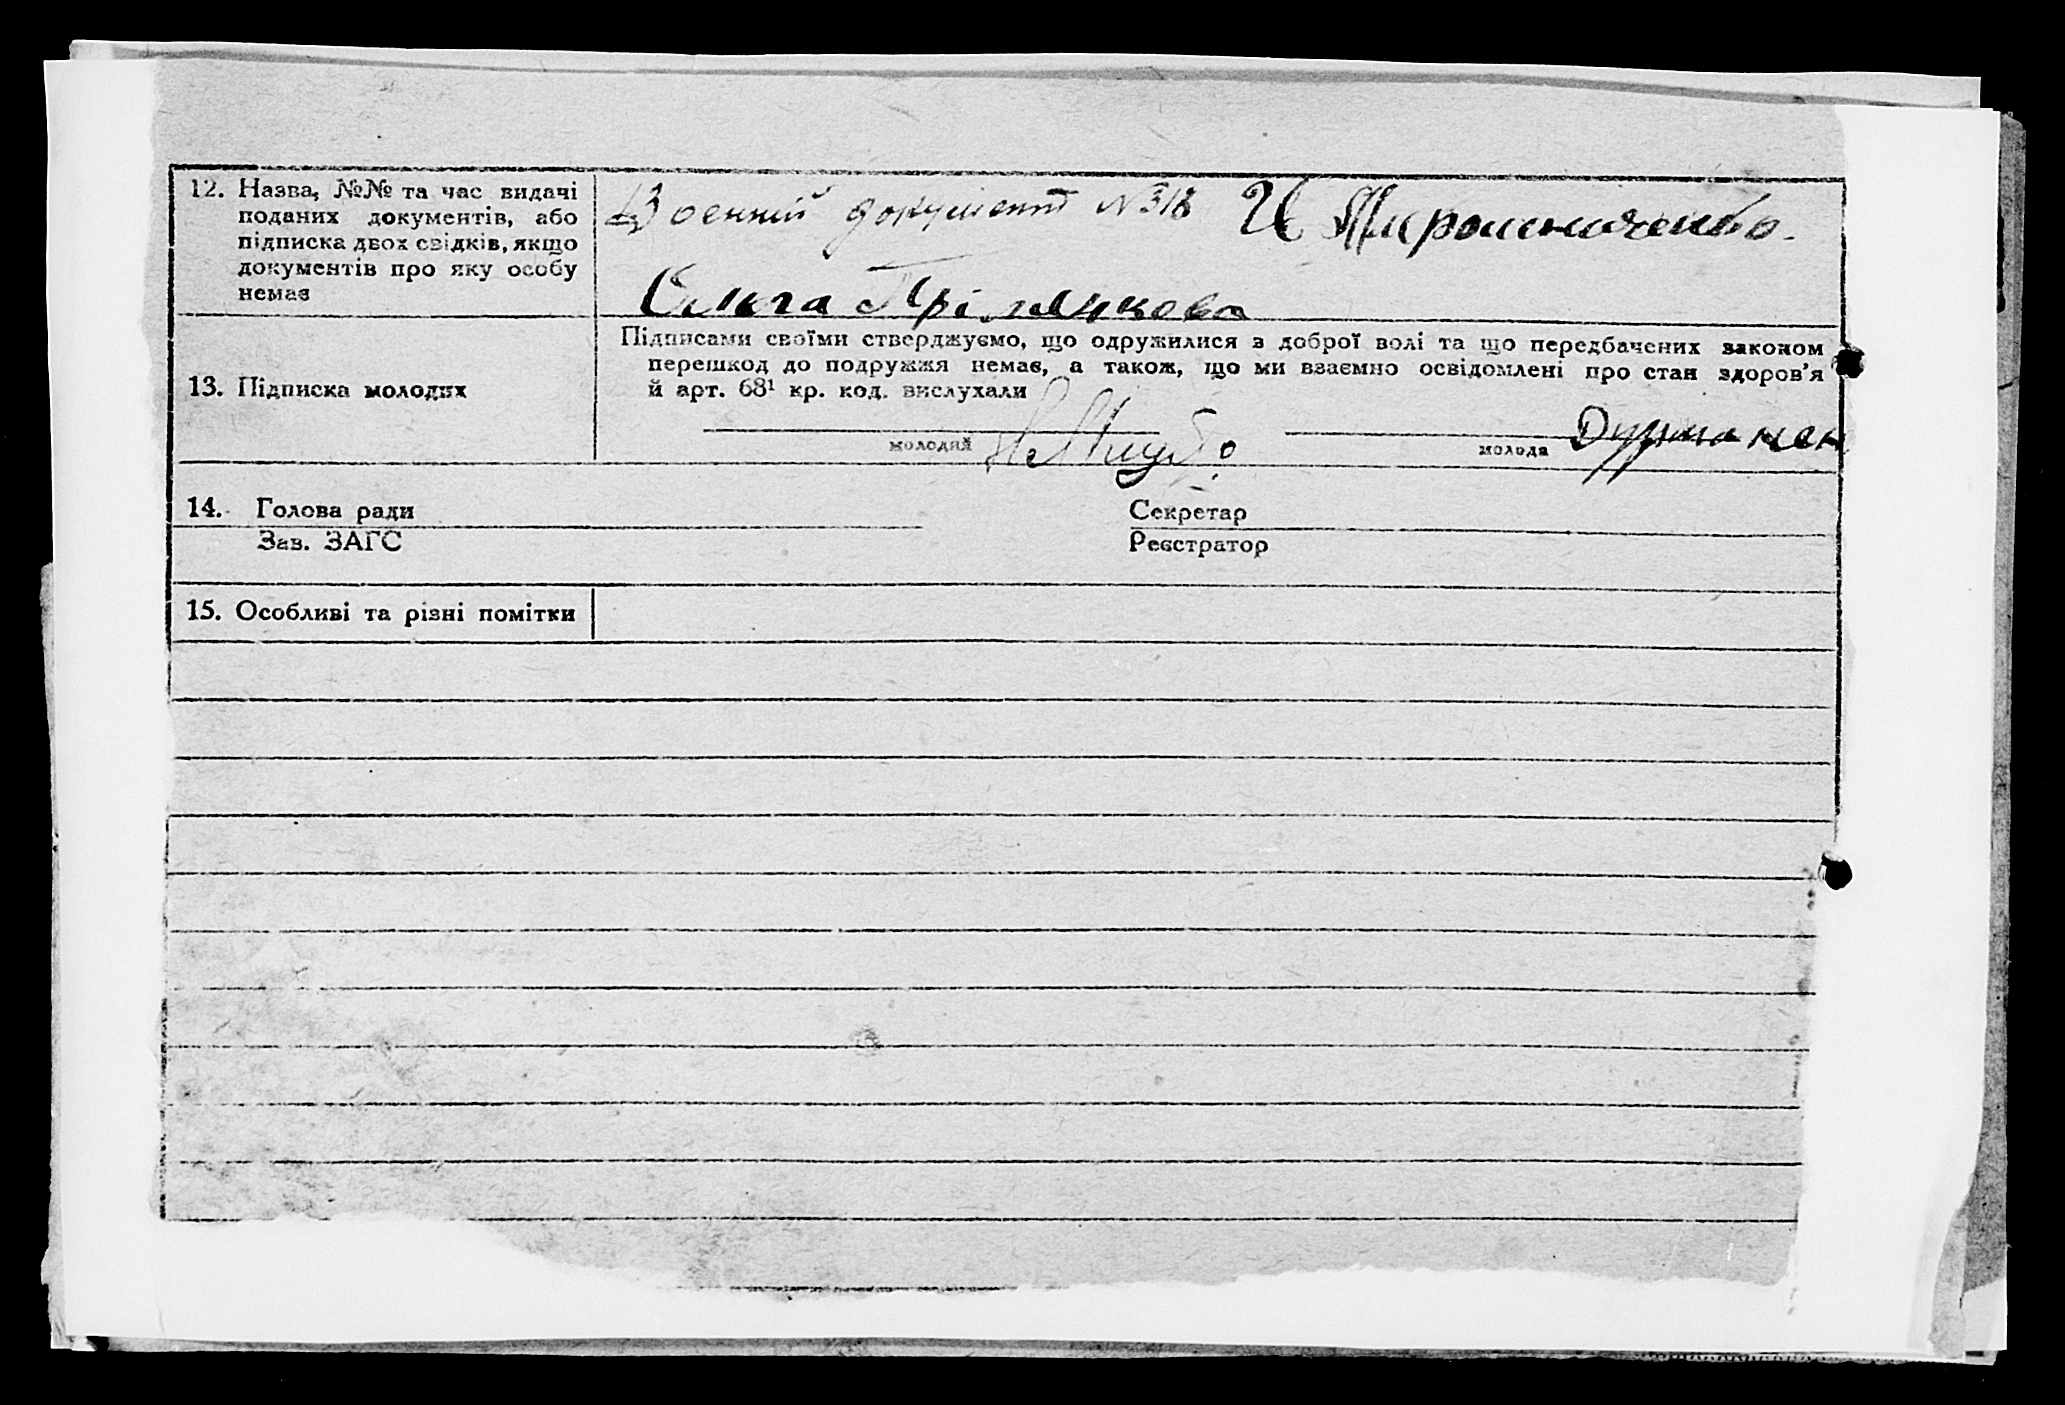 12. Назва, №№ та час видачі
поданих документів, або
підписка двох свідків, якщо
документів про яку особу
немає
Воєнний документ N 318 И Мирошниченко.
Ольга
Підписами своїми стверджуємо, що одружилися з доброї волі та що передбачених законом
перешкод до подружжя немає, а також, що ми взаємно освідомлені про стан здоров'я
й арт. 68¹ кр. код. вислухали
13. Підписка молодих
молодий
молода
14. Голова ради Секретар
Зав. ЗАГС Реєстратор
15. Особливі та різні помітки